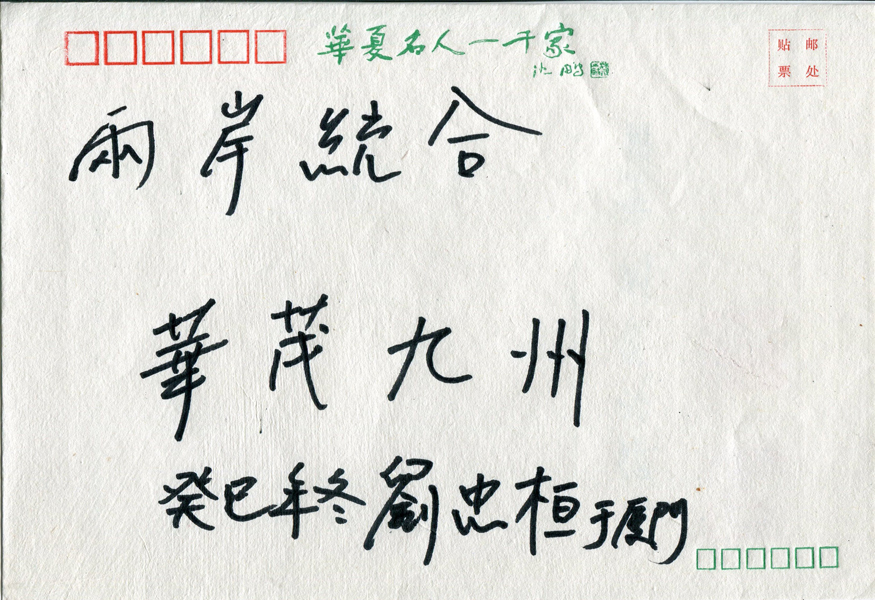 華夏名人一千家
沈鹏
贴 邮
票 处
兩岸統合
華茂九州
癸巳年冬劉忠桓于厦門